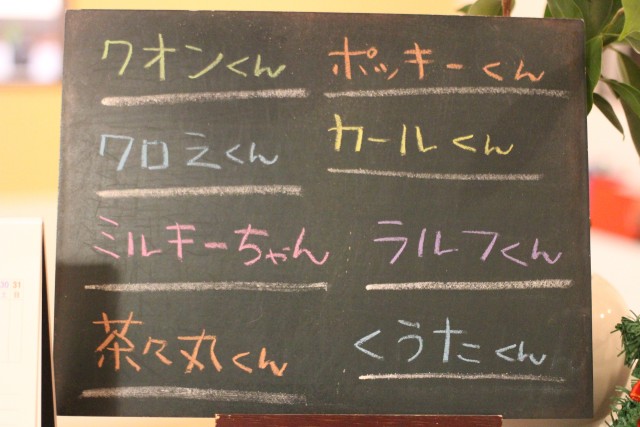 クオンくん
ポッキーくん
クロエくん
カールくん
ミルキーちゃん
ラルフくん
茶々丸くん
くうたくん